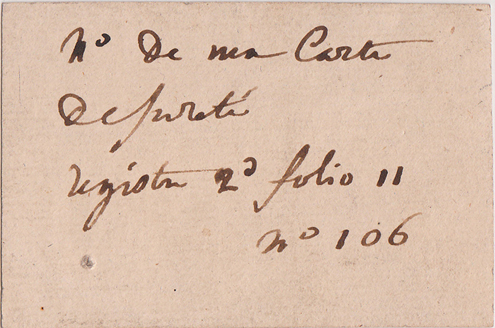 No De ma Carte
De sureté
registre 2d folio 11
no 106